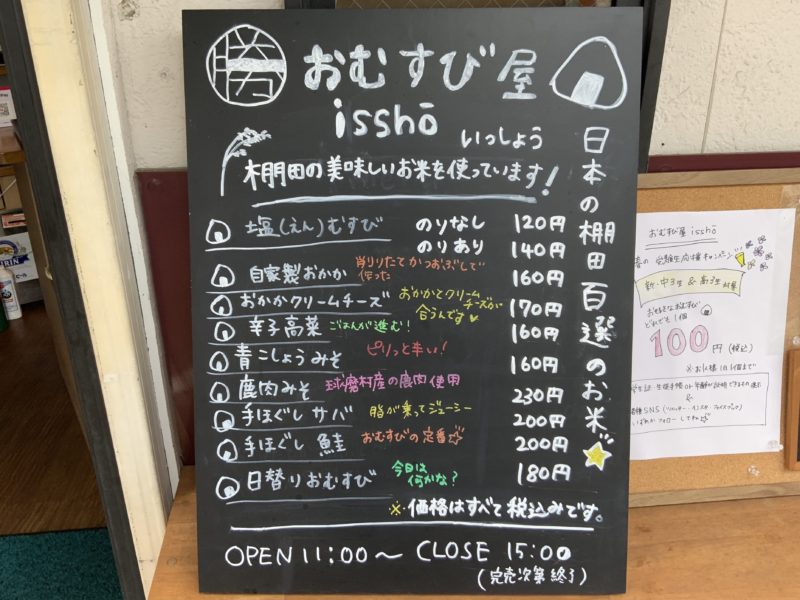 勝
おむすび屋
isshō
いっしょう
棚田の美味しいお米を使っています!
日本の棚田百選のお米
塩(えん)むすび のりなし 120円
のりあり 140円
自家製おかか 削りたてかつおぶしで作った 160円
おかかクリームチーズ おかかとクリームチーズが合うんです 170円
辛子高菜 ごはんが進む! 160円
青こしょうみそ ピリっと辛い! 160円
鹿肉みそ 球磨村産の鹿肉使用 230円
手ほぐしサバ 脂が乗ってジューシー 200円
手ほぐし鮭 おむすびの定番 200円
日替りおむすび 今日は何かな? 180円
※価格はすべて税込みです。
OPEN 11:00〜 CLOSE 15:00
(完売次第終了)
おむすび屋 isshō
春の受験生応援キャンペーン
新・中3生 & 高3生 対象
お好きなおむすび
どれでも1個
100円(税込)
※お1人様1個まで
&